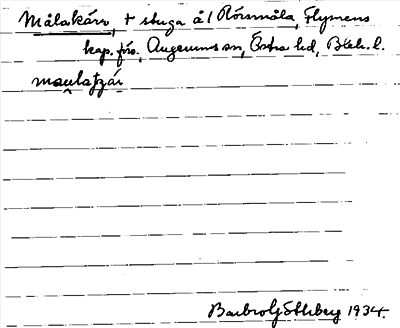 Målakärr, + stuga å/ Rörsmåla, Flymens
kap. förs. Augerums sn, Östra hd, Blek. l.
Barbro Göthberg 1934.